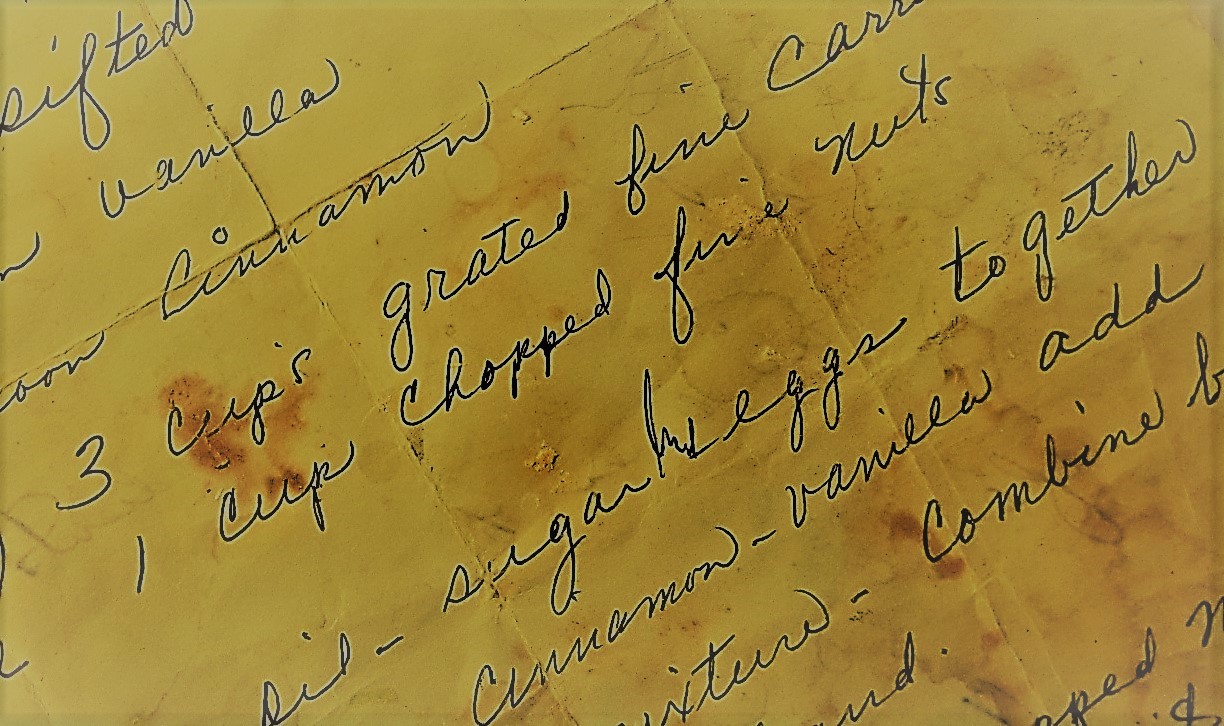 sifted
vanilla
Cinnamon
3 cup's grated fine
1 cup chopped fine nuts
oil - sugar eggs together
Cinnamon - vanilla add
Combine